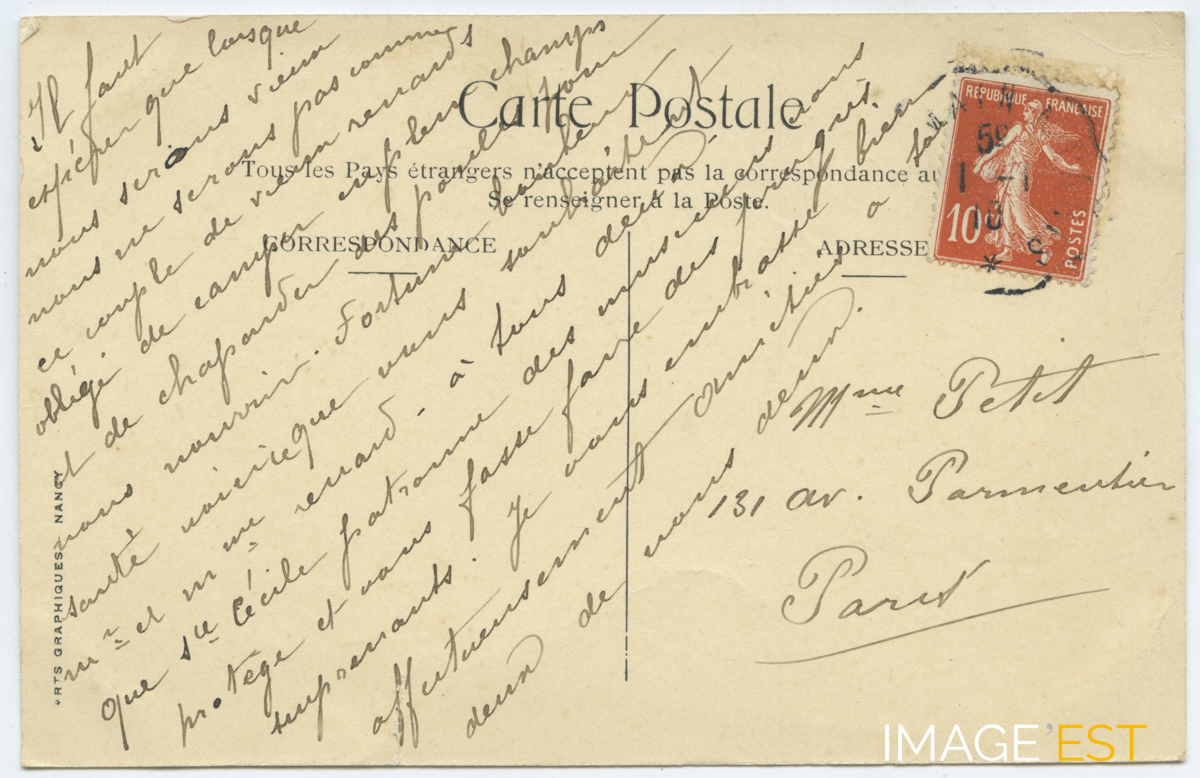 Carte Postale
Tous les Pays étrangers n'acceptent pas la correspondance au
Se renseigner à la Poste.
CORRESPONDANCE
ADRESSE
Il faut
espérer que lorsque
nous serons vieux
nous ne serons pas comme
ce couple de vieux renards
obligé de camper en plein champs
et de chaparder des poules pour
nous nourrir. Fortune bonheur et
santé voici ce que vous souhaitent
Mr et Mme renard. à tous deux.
que Ste Cécile patronne des musiciens vous
protége et vous fasse faire des progrès
surprenants. Je vous embrasse bien
affectueusement amitiés a tous
deux de nous deux.
Mme Petit
131 av. Parmentier
Paris
RÉPUBLIQUE FRANÇAISE
10c
POSTES
59
1 - 1
10
ARTS GRAPHIQUES NANCY
IMAGE'EST